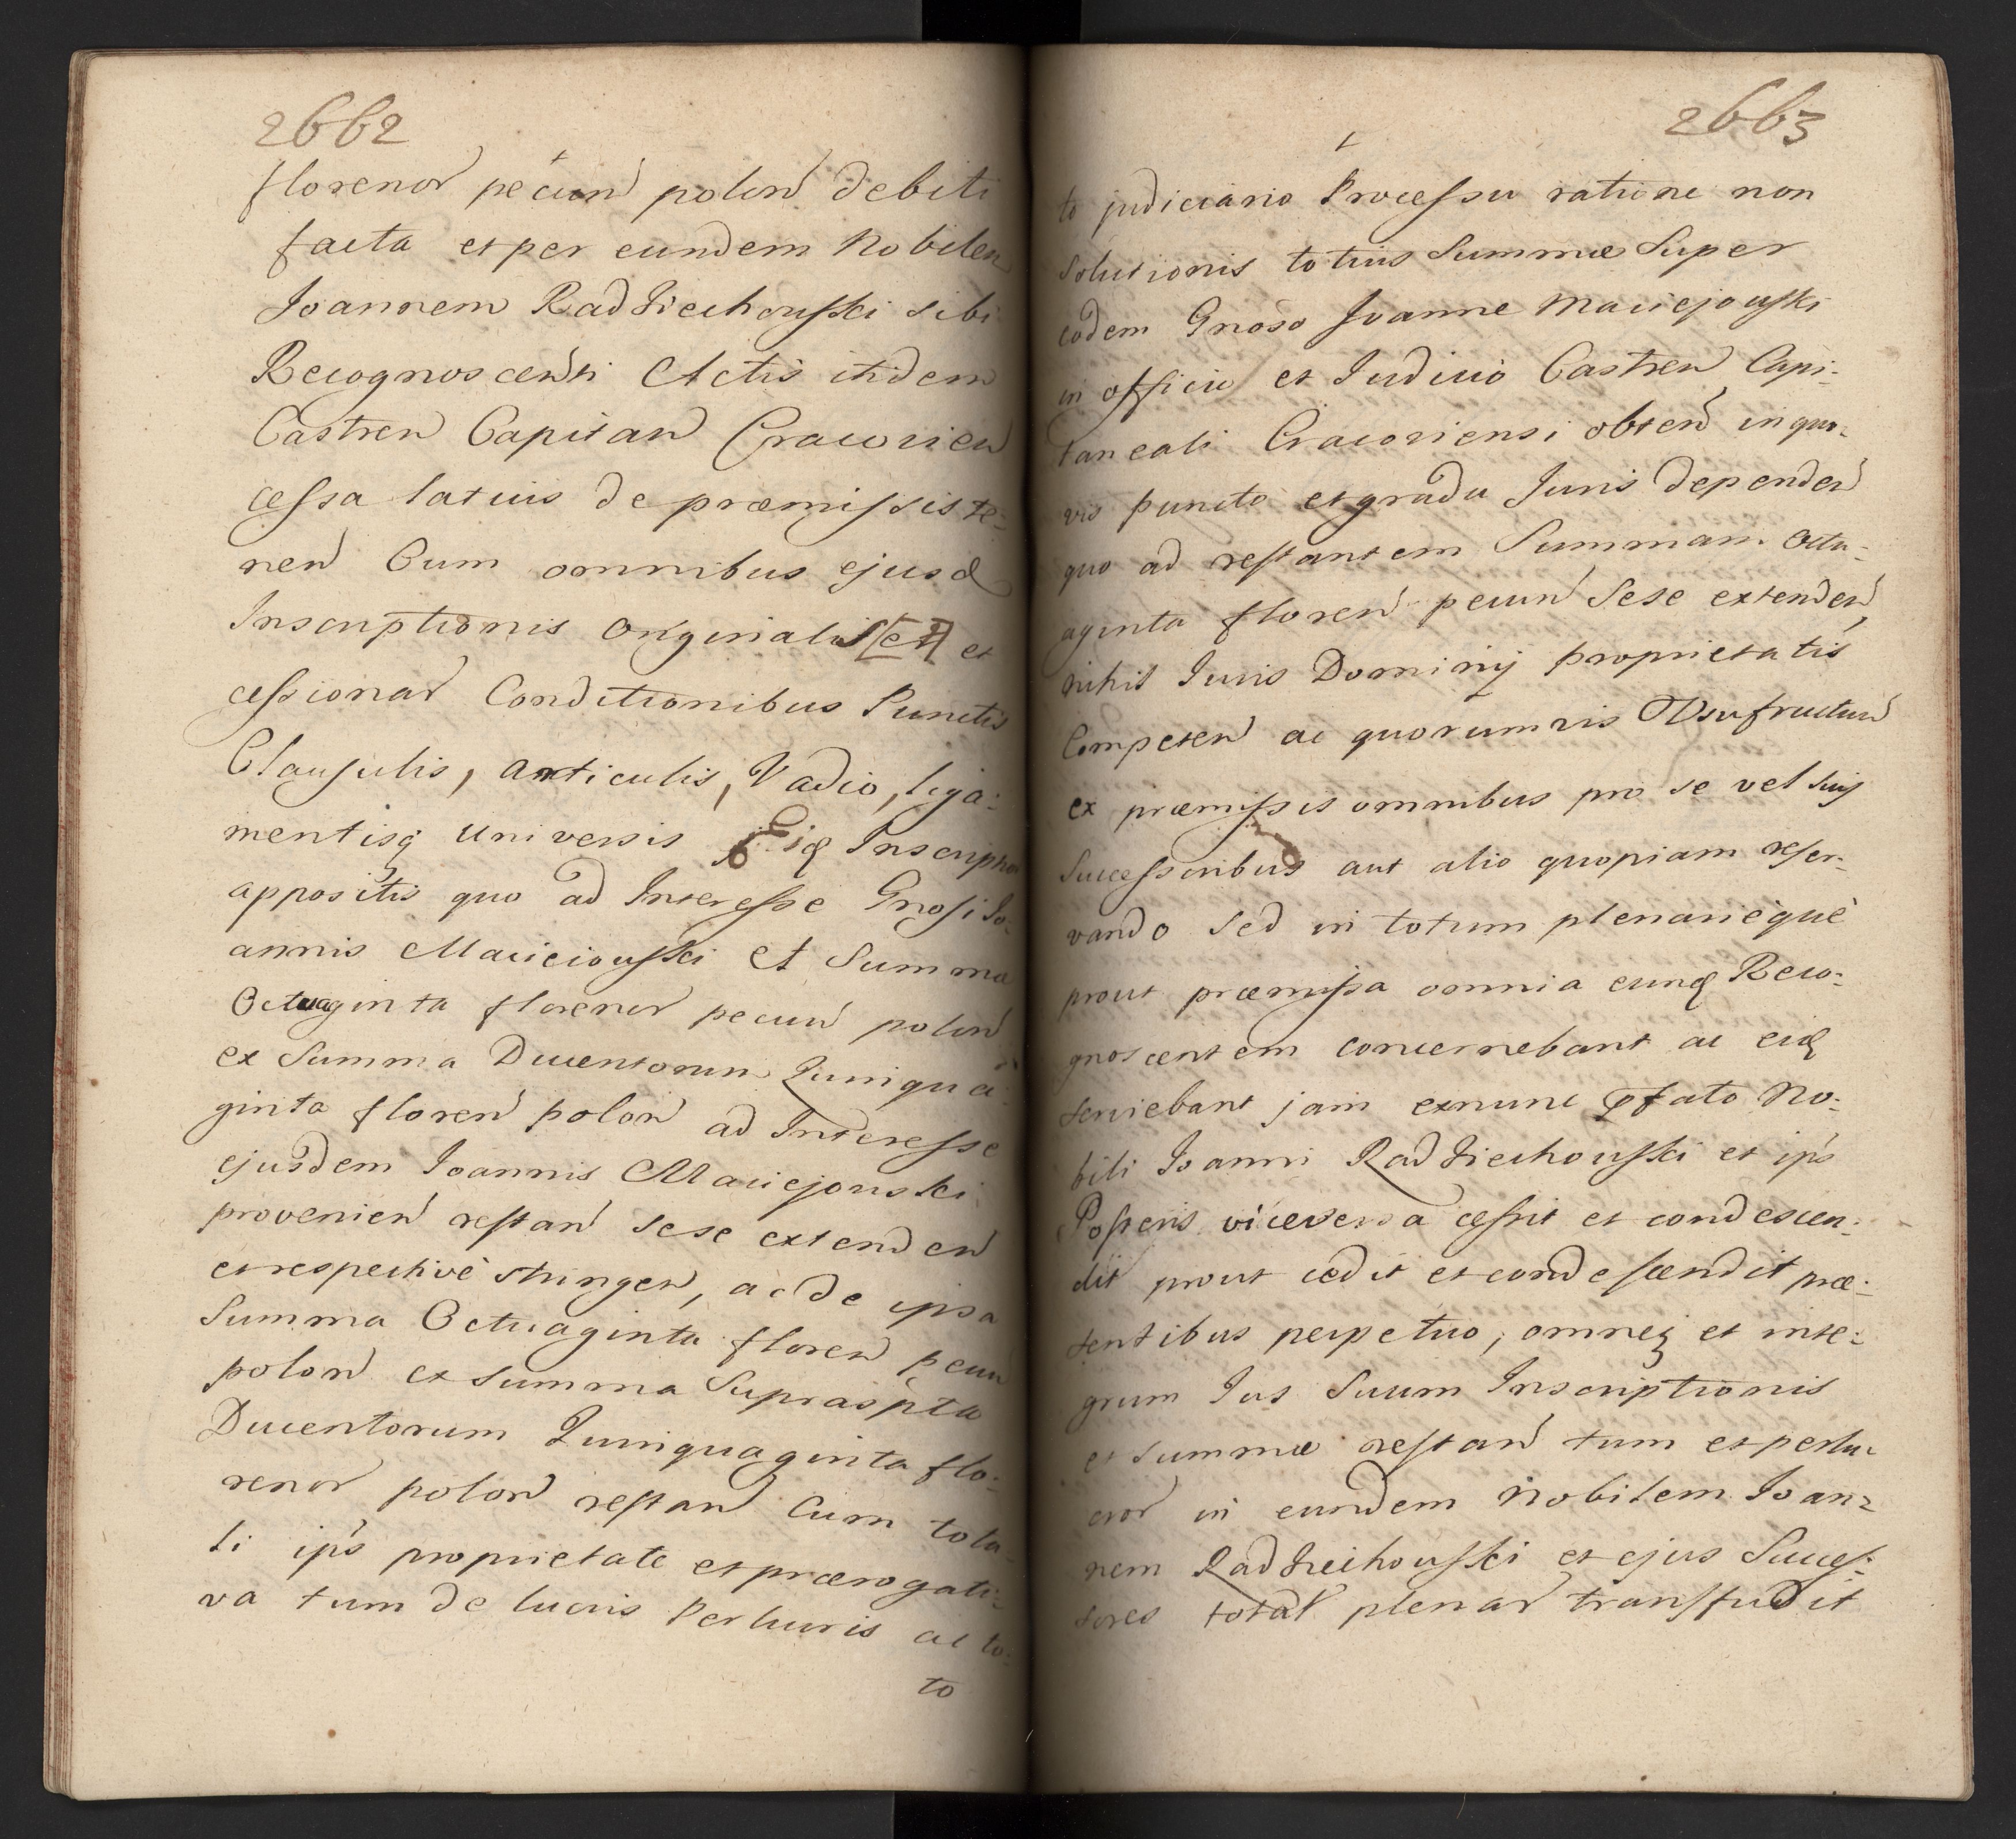 2662
florenor pecun polon debiti
facta et per eundem Nobilem
Joannem Radziechouski sibi
Recognoscenti Actis itidem
Castren Capitan Cracovien
cessa latius de præmissis te-
nen Cum omnibus ejusd
Inscriptionis Originalis [et] et
cessionar Conditionibus Punctis
Clausulis, Articulis, Vadio, liga-
mentisq Universis Eid Inscriptioni
appositis quo ad Interesse Gnosi Jo-
annis Macieiouski et Summa
Octuaginta florenor pecun polon
ex Summa Ducentorum Quinqua-
ginta floren polon ad Interesse
ejusdem Joannis Maciejouski
provenien restan sese extenden
et respective stringen, ac de ipsa
Summa Octuaginta floren pecun
polon ex summa Suprascripta
Ducentorum Quinquaginta flo-
renor polon restan Cum tota-
li ips proprietate et prærogati-
va tum de lucris Perlucris ac to-
to
2663
to judiciario Processu ratione non
Solutionis totius Summæ Super
eodem Gnoso Joanne Maciejouski
in officio et Judicio Castren Capi-
taneali Cracoviensi obten in quo-
vis puncto et gradu Juris dependen
quo ad restantem Summam Octu-
aginta floren pecun Sese extenden,
nihil Juris Dominij proprietatis
Competen ac quorumvis Vsufructuum
ex præmissis omnibus pro se vel suis
Successoribus aut alio quopiam reser-
vando Sed in totum plenarièquè
prout præmissa omnia eund Reco-
gnoscentem concernebant ac eid
serviebant jam exnunc pfato No-
bili Joanni Radziechouski et ips
Posteris viceversa cessit et condescen-
dit prout cedit et condescendit præ-
sentibus perpetuo, omneq et inte-
grum Jus Suum Inscriptionis
et summæ restan tum et perlu-
cror in eundem Nobilem Joan-
nem Radziechouski et ejus Succes-
sores total plenar transfudit